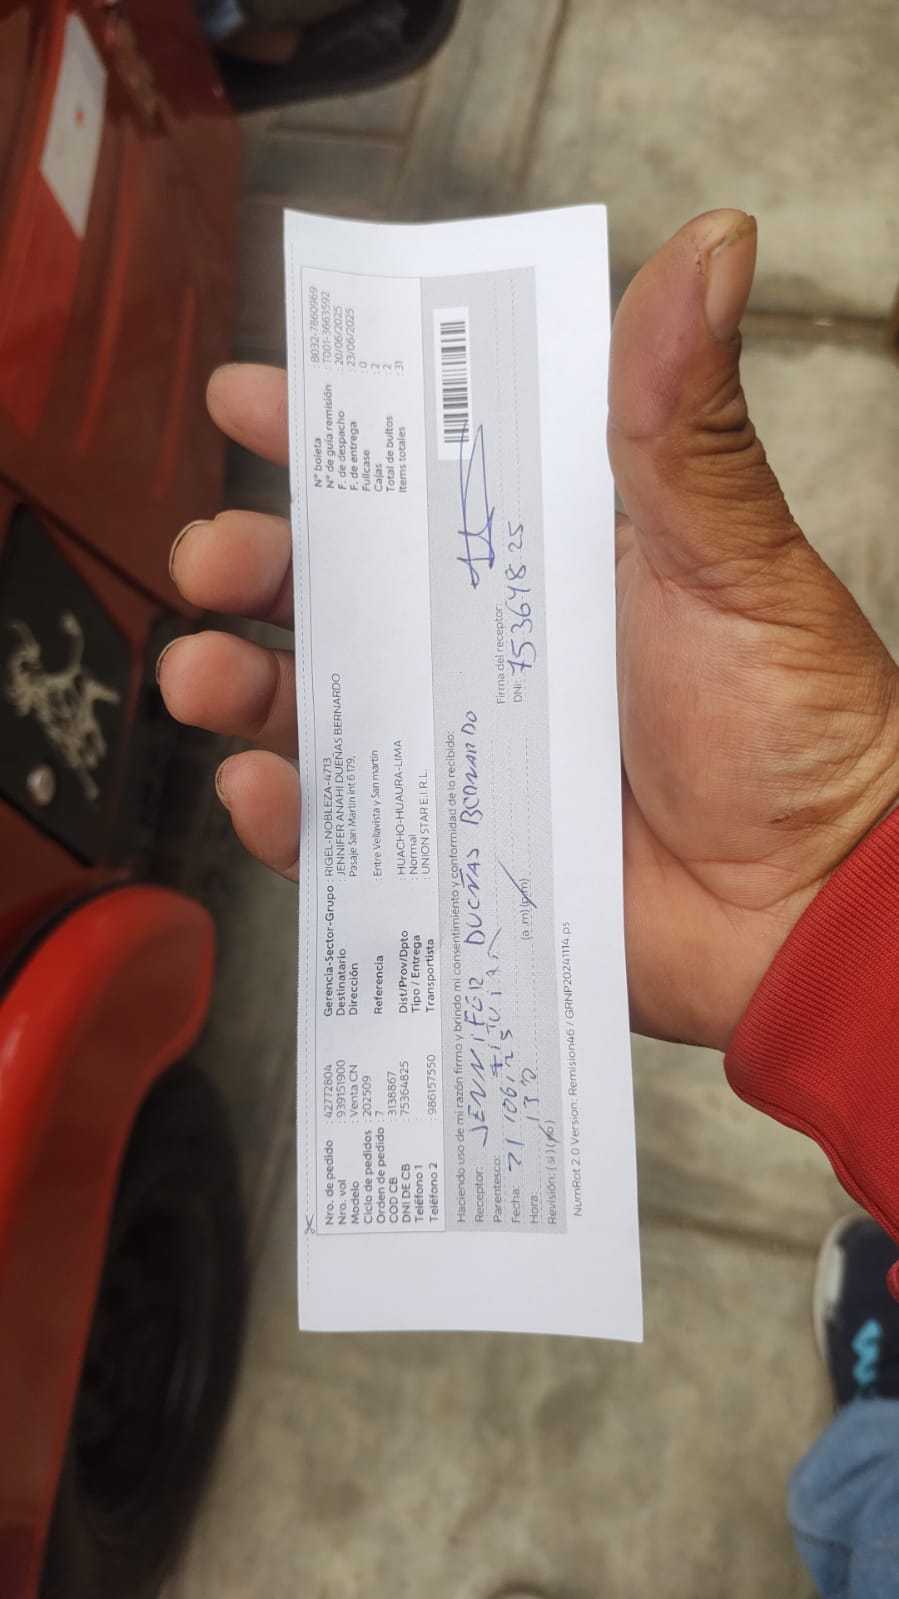 Nro. de pedido : 42772804
Nro. vol : 939151900
Modelo : Venta CN
Ciclo de pedidos : 202509
Orden de pedido : 7
COD CB : 3138867
DNI DE CB : 75364825
Teléfono 1 :
Teléfono 2 : 986157550
Gerencia-Sector-Grupo : RIGEL-NOBLEZA-4713
Destinatario : JENNIFER ANAHI DUEÑAS BERNARDO
Dirección : Pasaje San Martin int 6 179,
Referencia : Entre Vellavista y San martin
Dist/Prov/Dpto : HUACHO-HUAURA-LIMA
Tipo / Entrega : Normal
Transportista : UNION STAR E.I.R.L.
N° boleta : B032-7860969
N° de guía remisión : T001-3663592
F. de despacho : 20/06/2025
F. de entrega : 23/06/2025
Fullcase : 0
Cajas : 2
Total de bultos : 2
Items totales : 31
Haciendo uso de mi razón firmo y brindo mi consentimiento y conformidad de lo recibido:
Receptor: JENNIFER DUEÑAS BERNARDO
Parentesco:
Fecha: 21/06/25
Hora: (a.m)(p.m)
Revisión: (si)(no)
Firma del receptor:
DNI: 75364825
NumRot 2.0 Version: Remision46 / GRNP20241114 ps